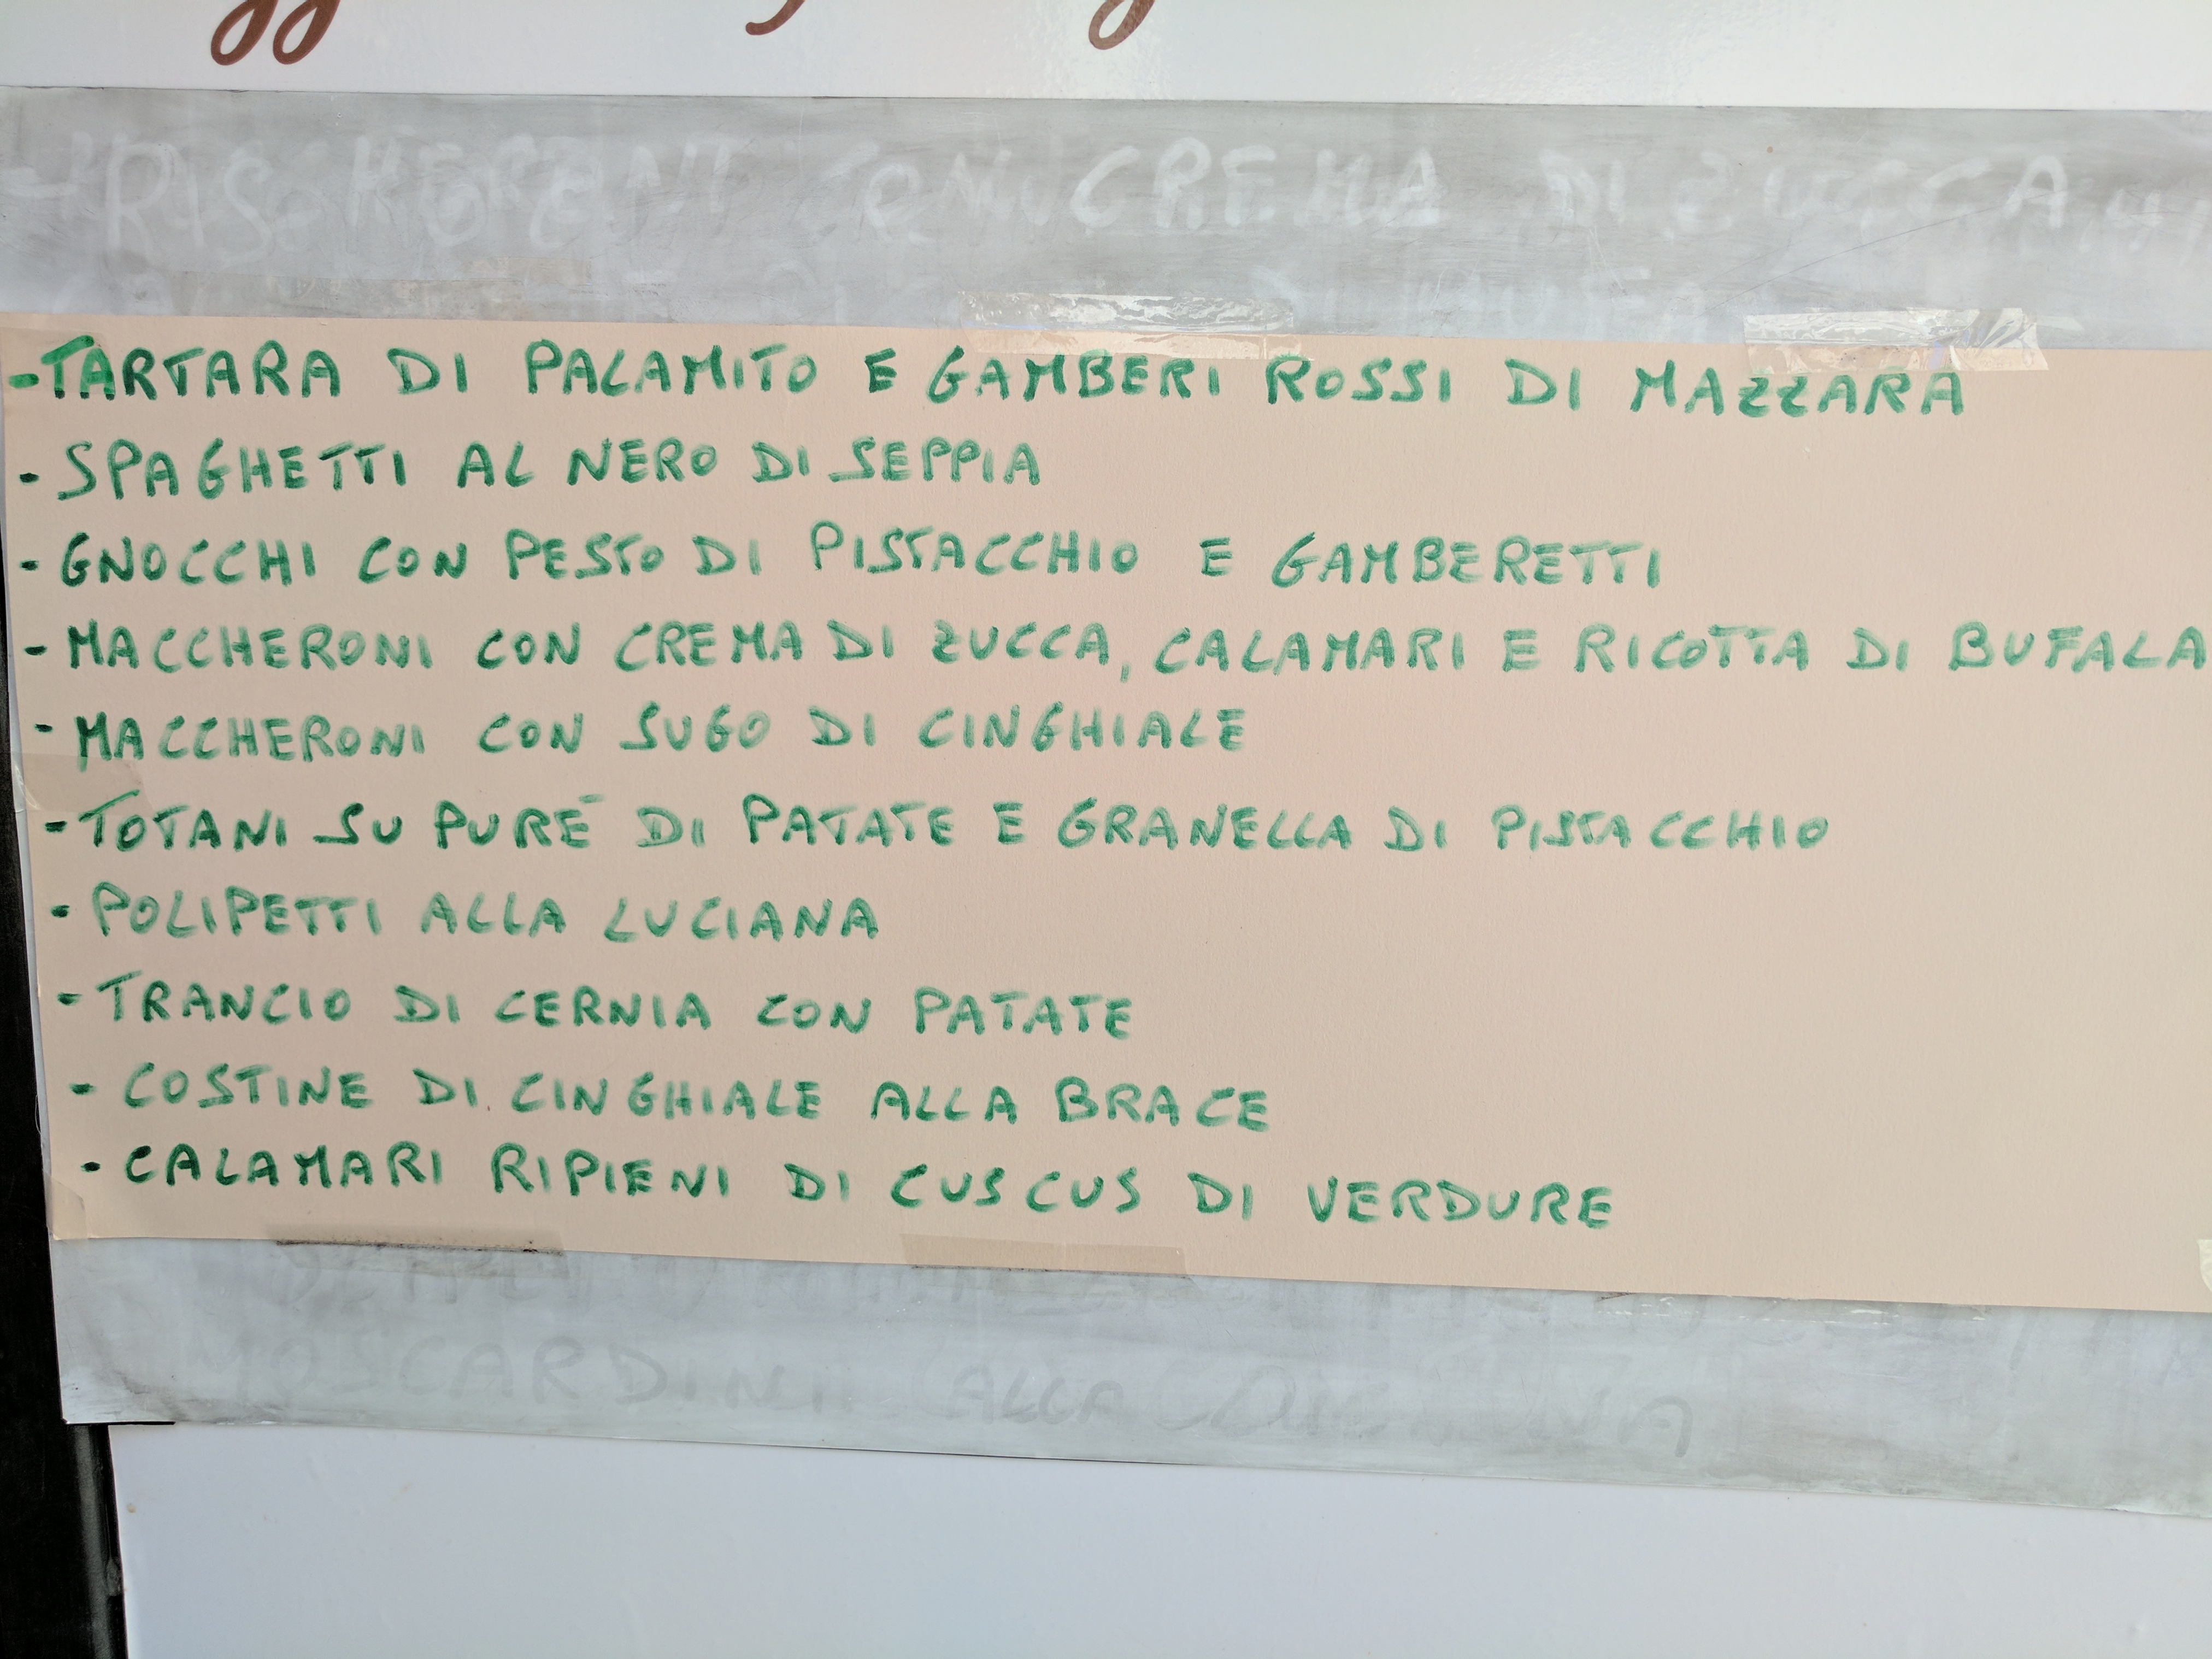 CREMA DI ZUCCA
-TARTARA DI PALAMITO E GAMBERI ROSSI DI MAZZARA
- SPAGHETTI AL NERO DI SEPPIA
- GNOCCHI CON PESTO DI PISTACCHIO E GAMBERETTI
- MACCHERONI CON CREMA DI ZUCCA, CALAMARI E RICOTTA DI BUFALA
- MACCHERONI CON SUGO DI CINGHIALE
- TOTANI SU PURÉ DI PATATE E GRANELLA DI PISTACCHIO
- POLIPETTI ALLA LUCIANA
- TRANCIO DI CERNIA CON PATATE
- COSTINE DI CINGHIALE ALLA BRACE
- CALAMARI RIPIENI DI CUSCUS DI VERDURE
MOSCARDINI ALLA